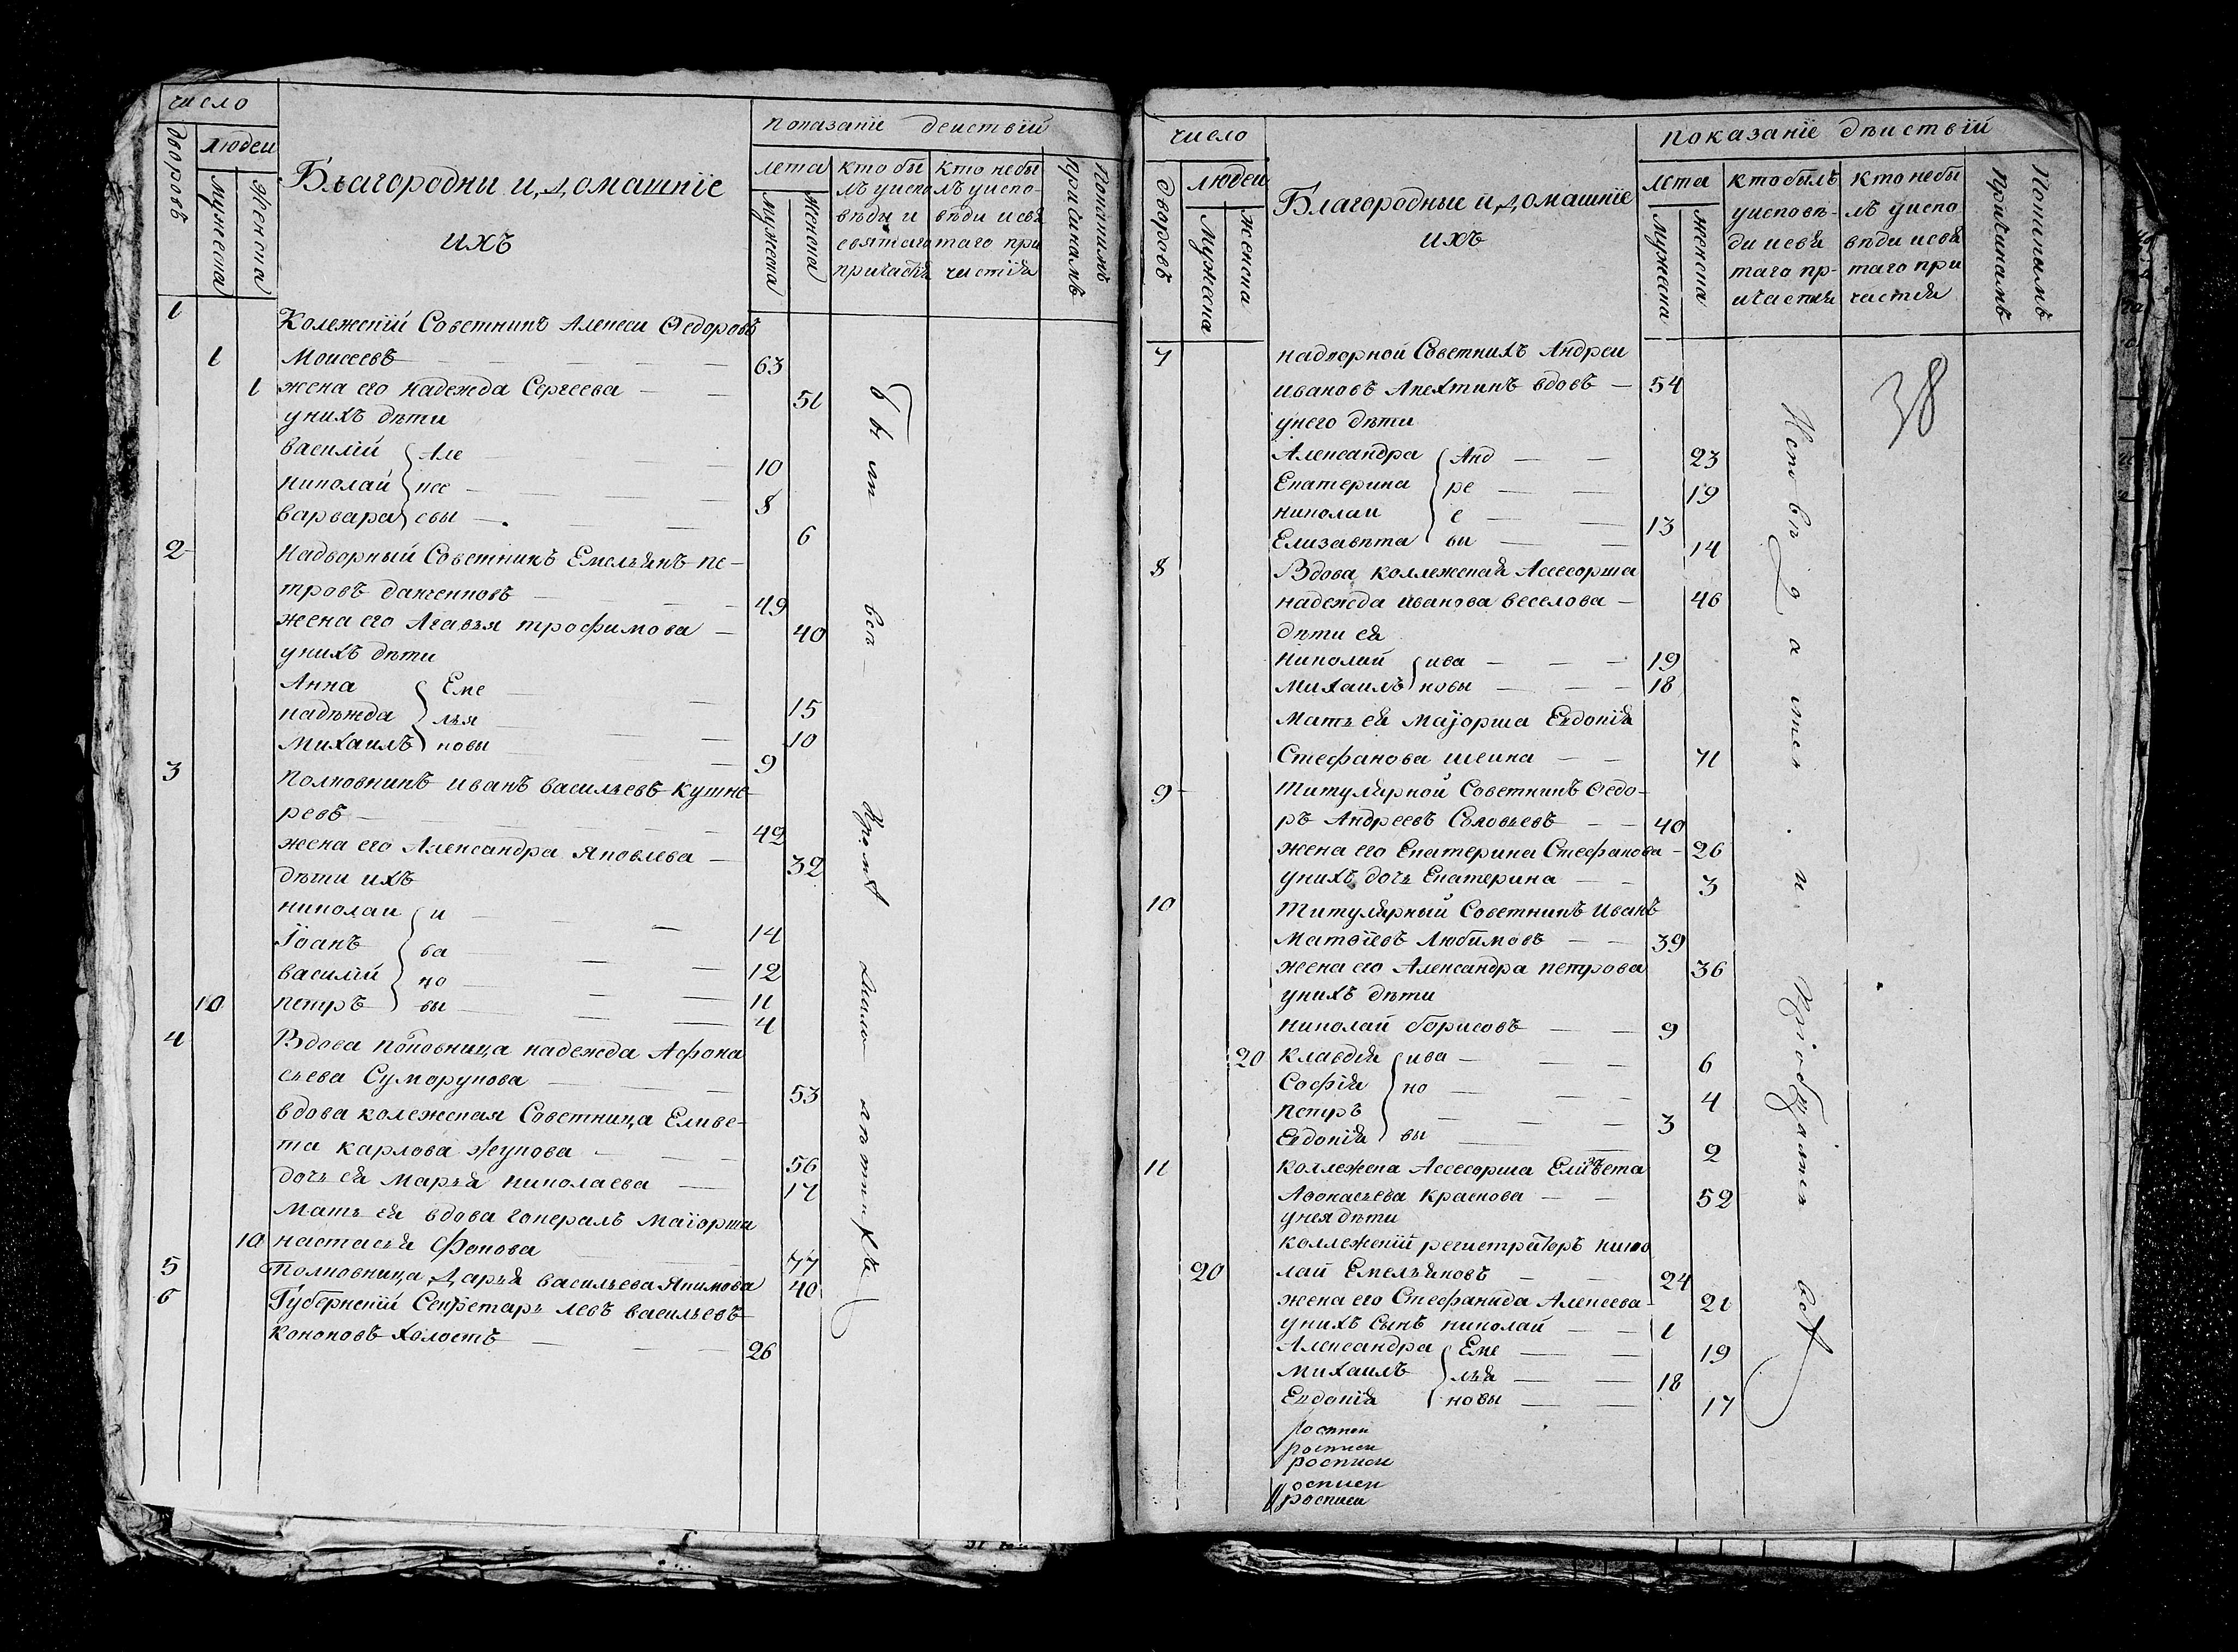 число
дворовъ
людеи
мужеска
женска
Благородни и домашнїе
ихъ
показанїе деиствїй
лета
мужеска
женска
кто бы
лъ уиспо
вѣды и
святаго
причастїя
кто небы
лъ уиспо-
вѣди исвя
таго при
частїя
Покакимъ
причинамъ
1
Колежскїй Советникъ Алексеи Ѳедоровъ
1 Моисеевъ 63
1 жена его надежда Сергеева 51
унихъ дѣти
василїй Але 10
николай ксе 8
варвара евы 6
2 Надворный Советникъ Емельянъ пе-
тровъ 49
жена его Агавья трофимова 40
унихъ дѣти
Анна Еме 15
надѣжда лья 10
Михаилъ новы 9
3 Полковникъ иванъ васильевъ кушне
ревъ 42
жена его Александра яковлева 32
дѣти ихъ
николаи и 14
Їоанъ ва 12
василїй но 11
10 петръ вы 4
4 Вдова надежда Афона
сьева Сумарукова 53
вдова колежская Советница Еливе-
та карлова Жукова 56
дочь ея Марья николаева 17
Мать ея вдова генералъ Маїорша
10 настасья Фокова 77
5 Полковница Дарья васильева Якимова 40
6 Губернскїй Секретарь левъ васильевъ
кононовъ холостъ 26
были все кроме лѣтнихъ
число
дворовъ
людеи
мужеска
женска
Благородные и домашнїе
ихъ
показанїе дѣиствїй
лета
мужеска
женска
кто былъ
уисповѣ-
ди исвя
таго пр-
ичастїя
кто небы
лъ уиспо
вѣди исвя
таго при
частїя
причинамъ
Покакимъ
38
7 надворной Советникъ Андреи
ивановъ Апехтинъ вдовъ 54
унего дѣти
Александра Анд 23
Екатерина ре 19
николаи е 13
Елизавѣта вы 14
8 Вдова коллежская Асесорша
надежда иванова веселова 46
дѣти ея
николай ива 19
Михаилъ новы 18
Мать ея Маїорша Евдокїя
Стефанова шеина 71
9 Титулярной Советникъ Ѳедо-
ръ Андреевъ Соловьевъ 40
жена его Екатерина Стефанова 26
унихъ дочь Екатерина 3
10 Титулярный Советникъ Иванъ
Матѳїевъ Любимовъ 39
жена его Александра петрова 36
унихъ дѣти
николай борисовъ 9
20 клавдїя ива 6
Софїя но 4
петръ 3
Евдокїя вы 2
11 коллежска Ассесорша Елизъвета
Аѳонасьева краснова 52
унея дѣти
коллежскїй регистраторъ нико
20 лай Емельяновъ 24
жена его Стефанида Алексеева 21
унихъ сынъ николай 1
Александра Еме 19
Михаилъ лья 18
Евдокїя новы 17
росписи
росписи
росписи
осписи
росписи
и прїобщались всѣ